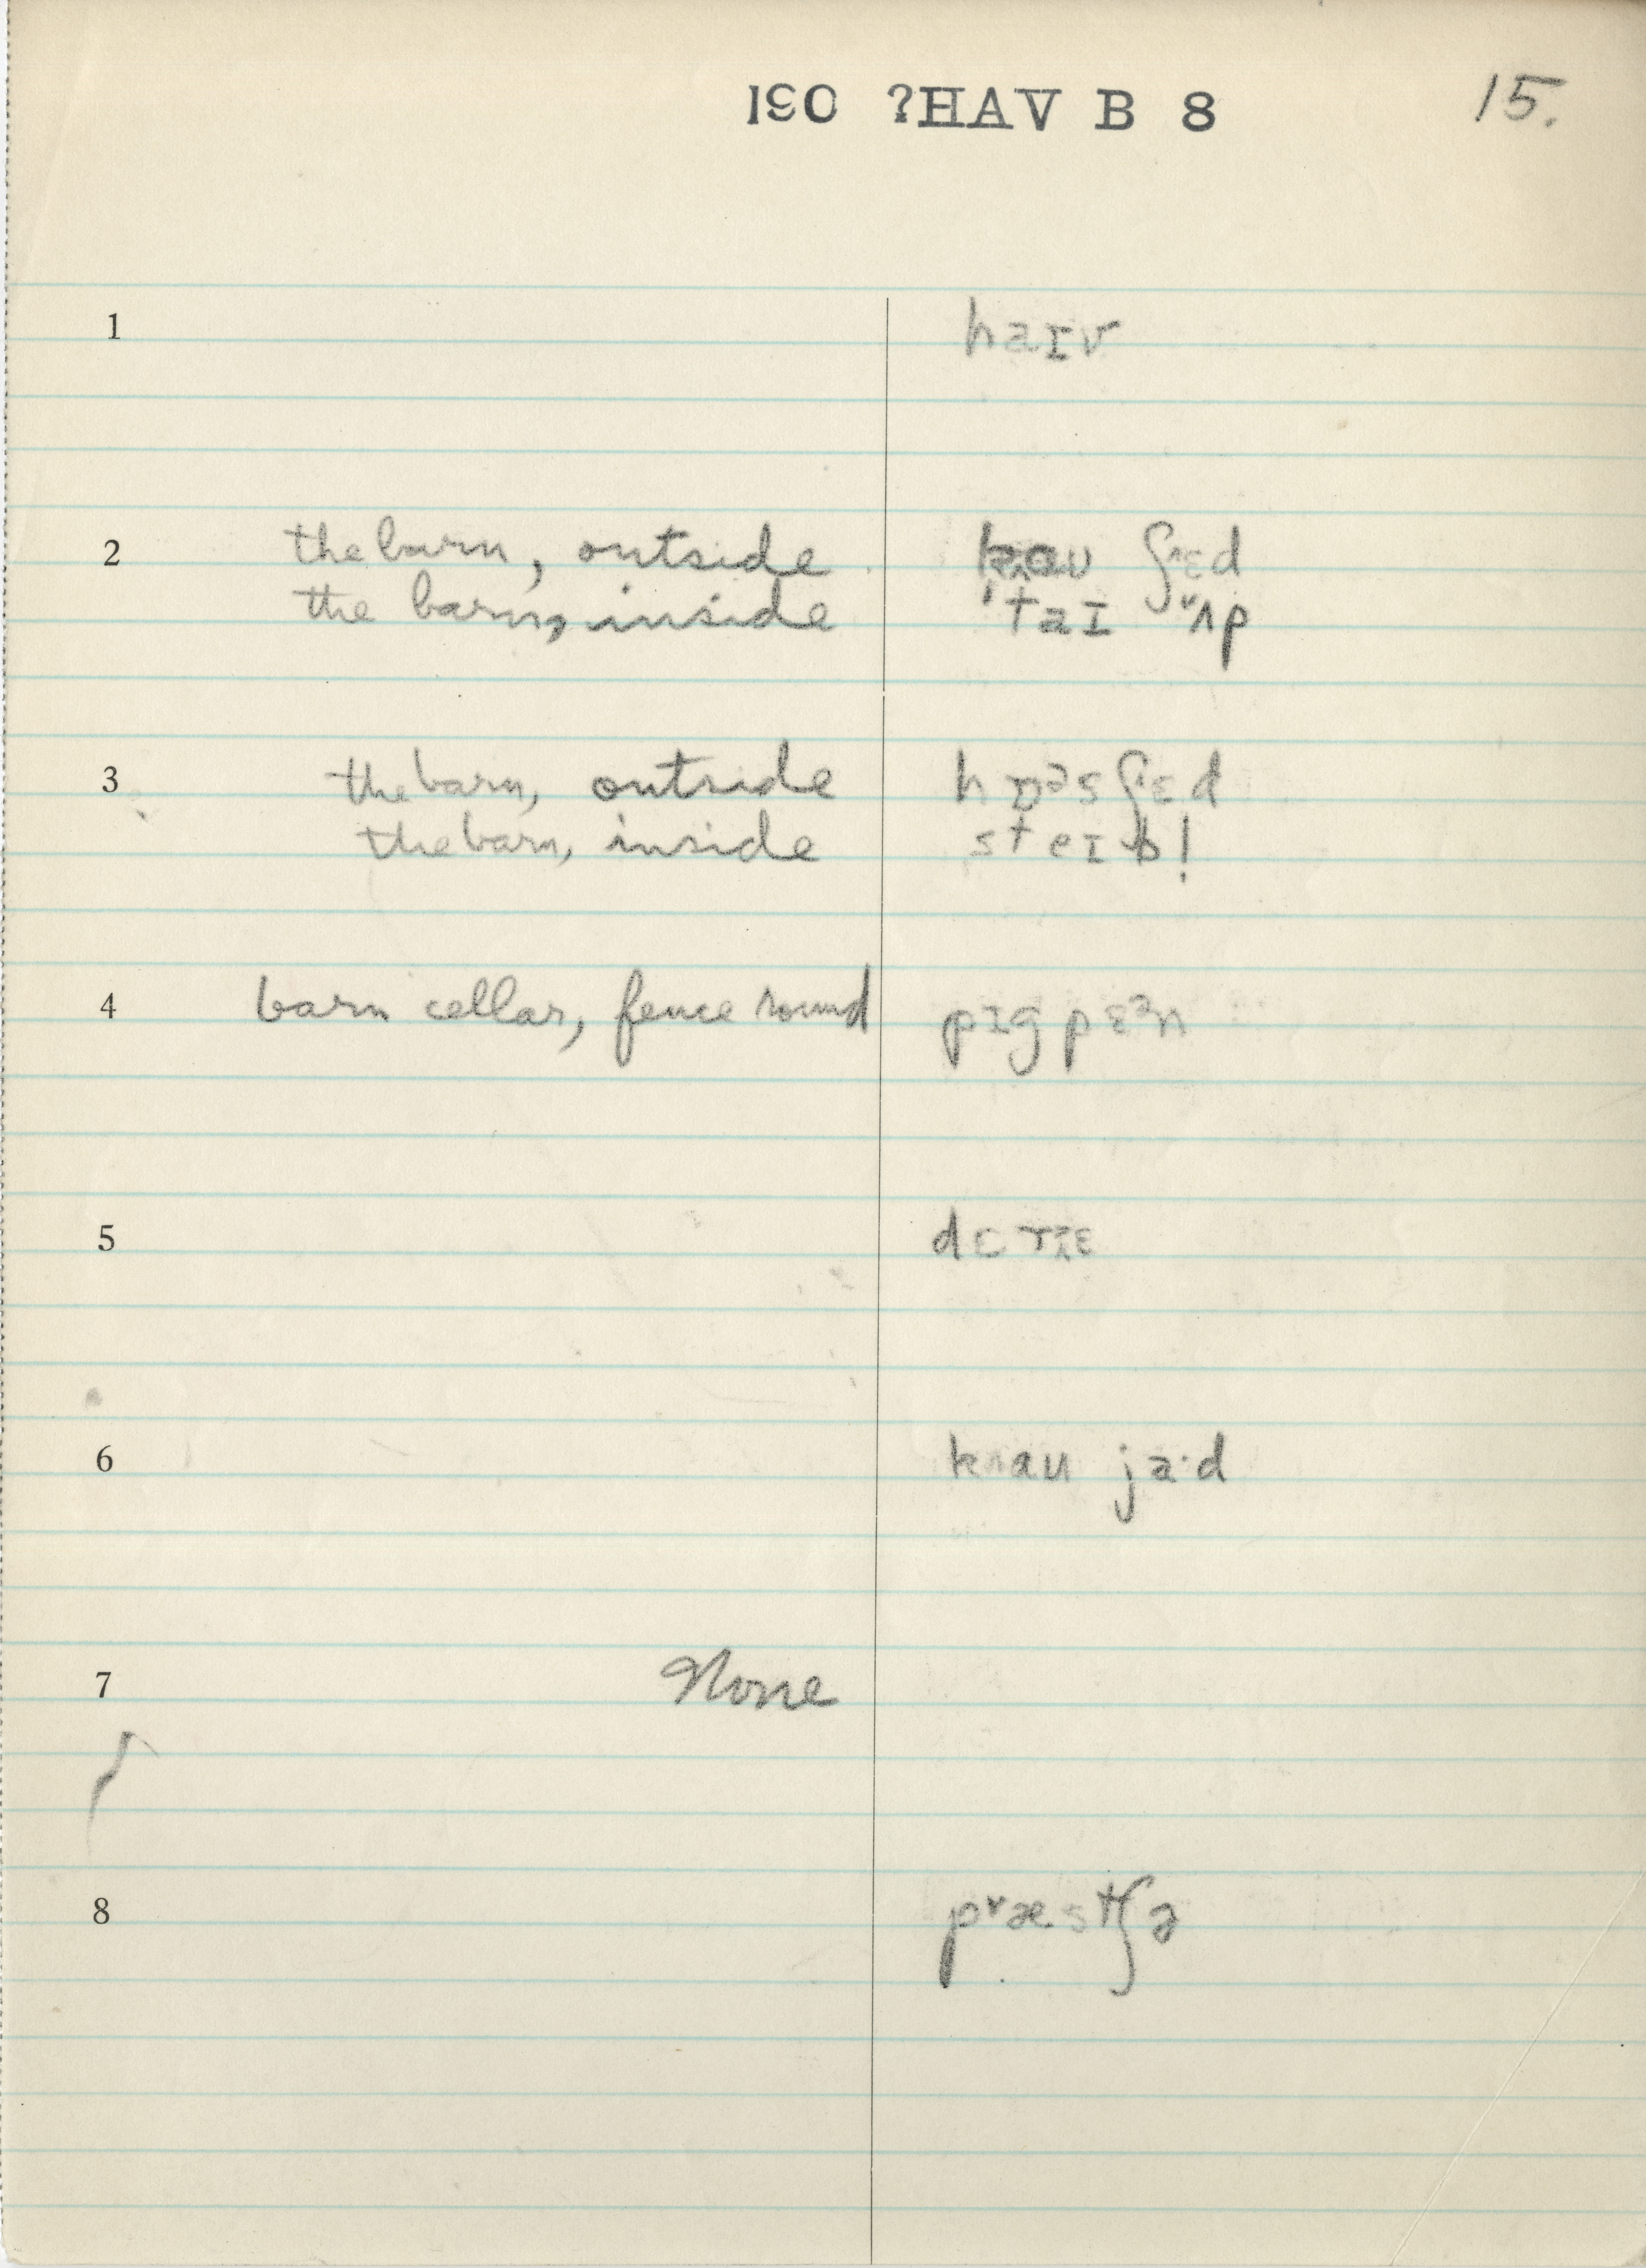 190 ?HAV B 8 15.
1 haɪv
2 the barn, outside kau ʃɛd
the barn, inside 'taɪ ʌp
3 the barn, outside hɒᵊsʃɛd
the barn, inside steɪbl̩
4 barn cellar, fence round pɪgpɛᵊn
5
6 kau ja·d
7 None
8 pˠæstʃə